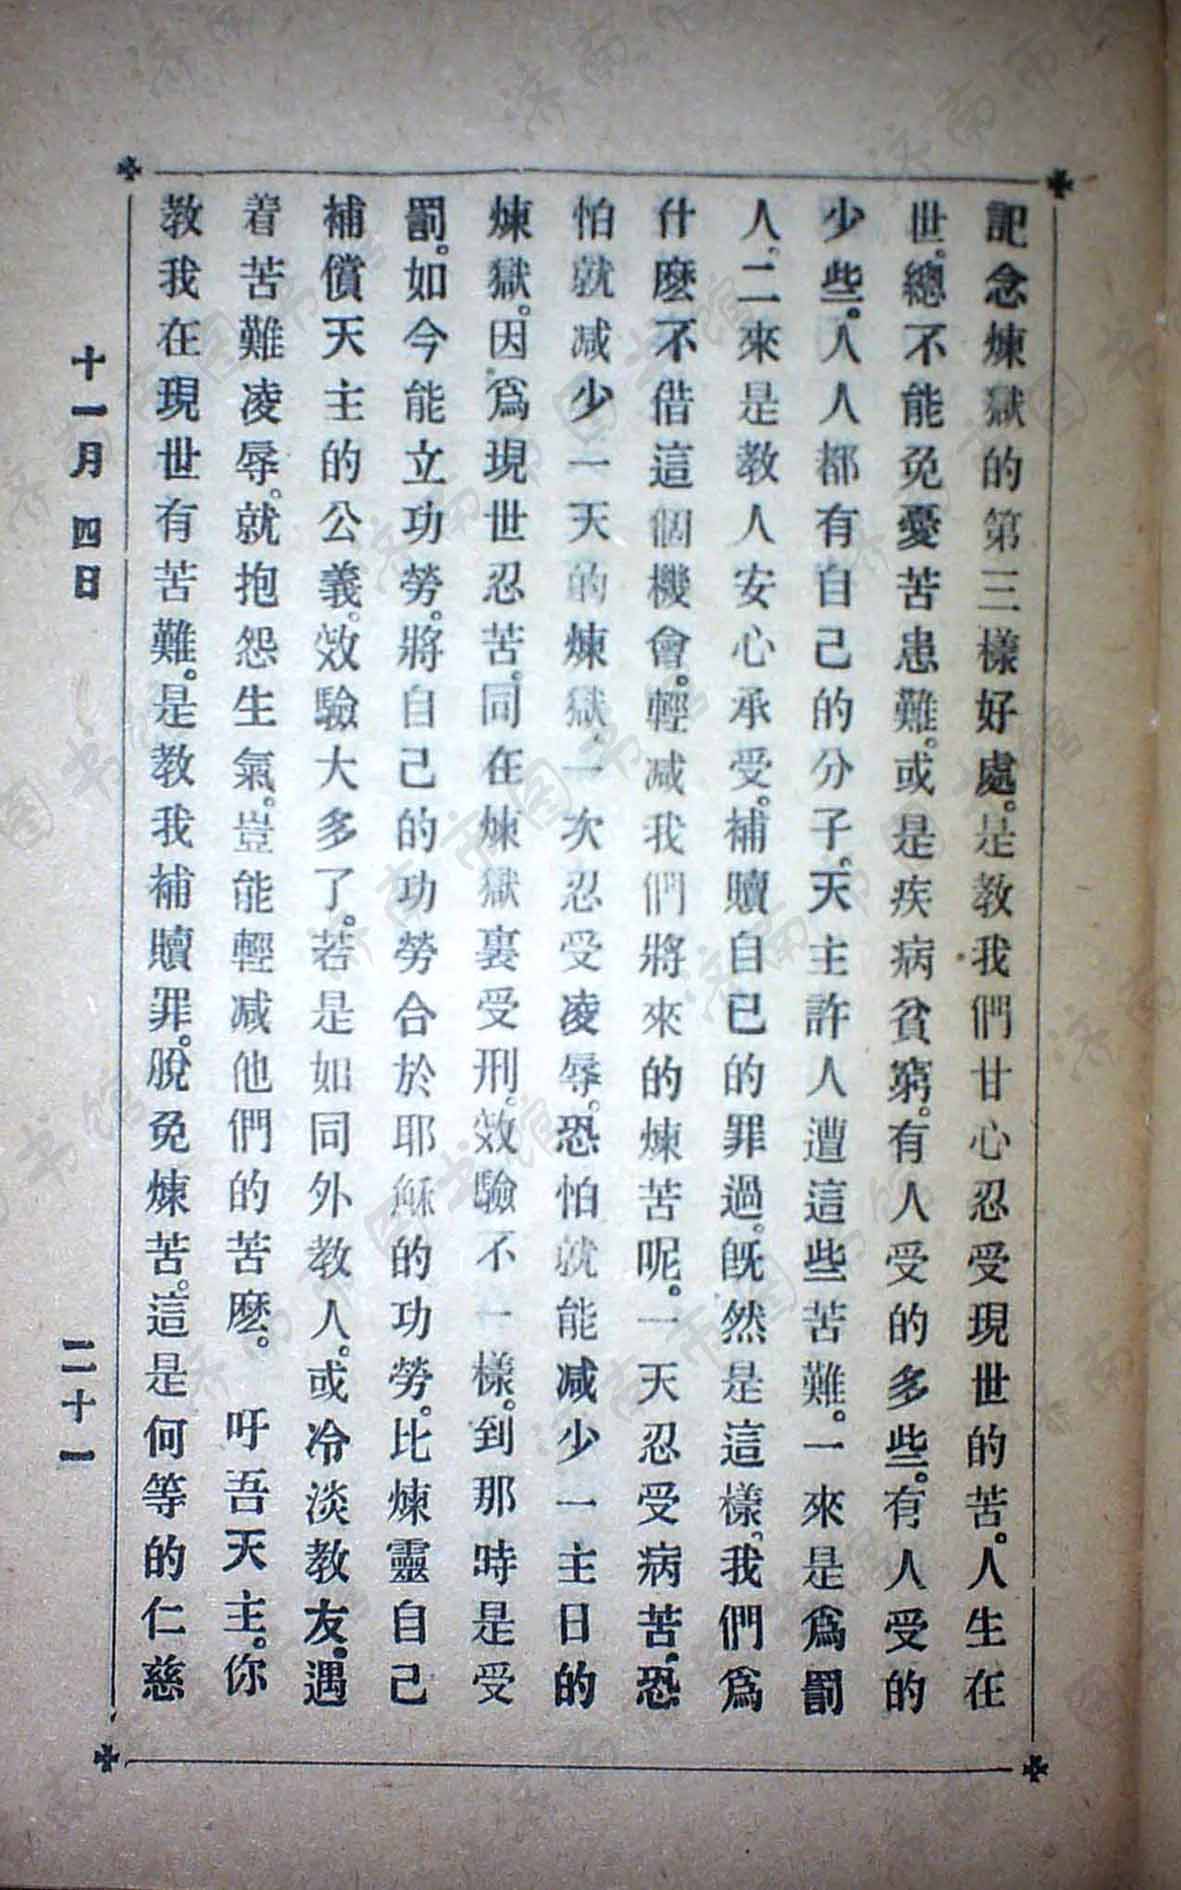 記念煉獄的第三樣好處。是教我們甘心忍受現世的苦。人生在
世。總不能免憂苦患難。或是疾病貧窮。有人受的多些。有人受的
少些。人人都有自己的分子。天主許人遭這些苦難。一來是爲罰
人。二來是教人安心承受。補贖自已的罪過。旣然是這樣。我們爲
什麽不借這個機會。輕減我們將來的煉苦呢。一天忍受病苦。恐
怕就減少一天的煉獄。一次忍受凌辱。恐怕就能減少一主日的
煉獄。因爲現世忍苦。同在煉獄裏受刑。效驗不一樣。到那時是受
罰。如今能立功勞。將自己的功勞合於耶穌的功勞。比煉靈自己
補償天主的公義。效驗大多了。若是如同外教人。或冷淡教友。遇
着苦難凌辱。就抱怨生氣。豈能輕減他們的苦麽。 吁吾天主。你
教我在現世有苦難。是教我補贖罪。脫免煉苦。這是何等的仁慈
十一月 四日 二十一
济南市图书馆